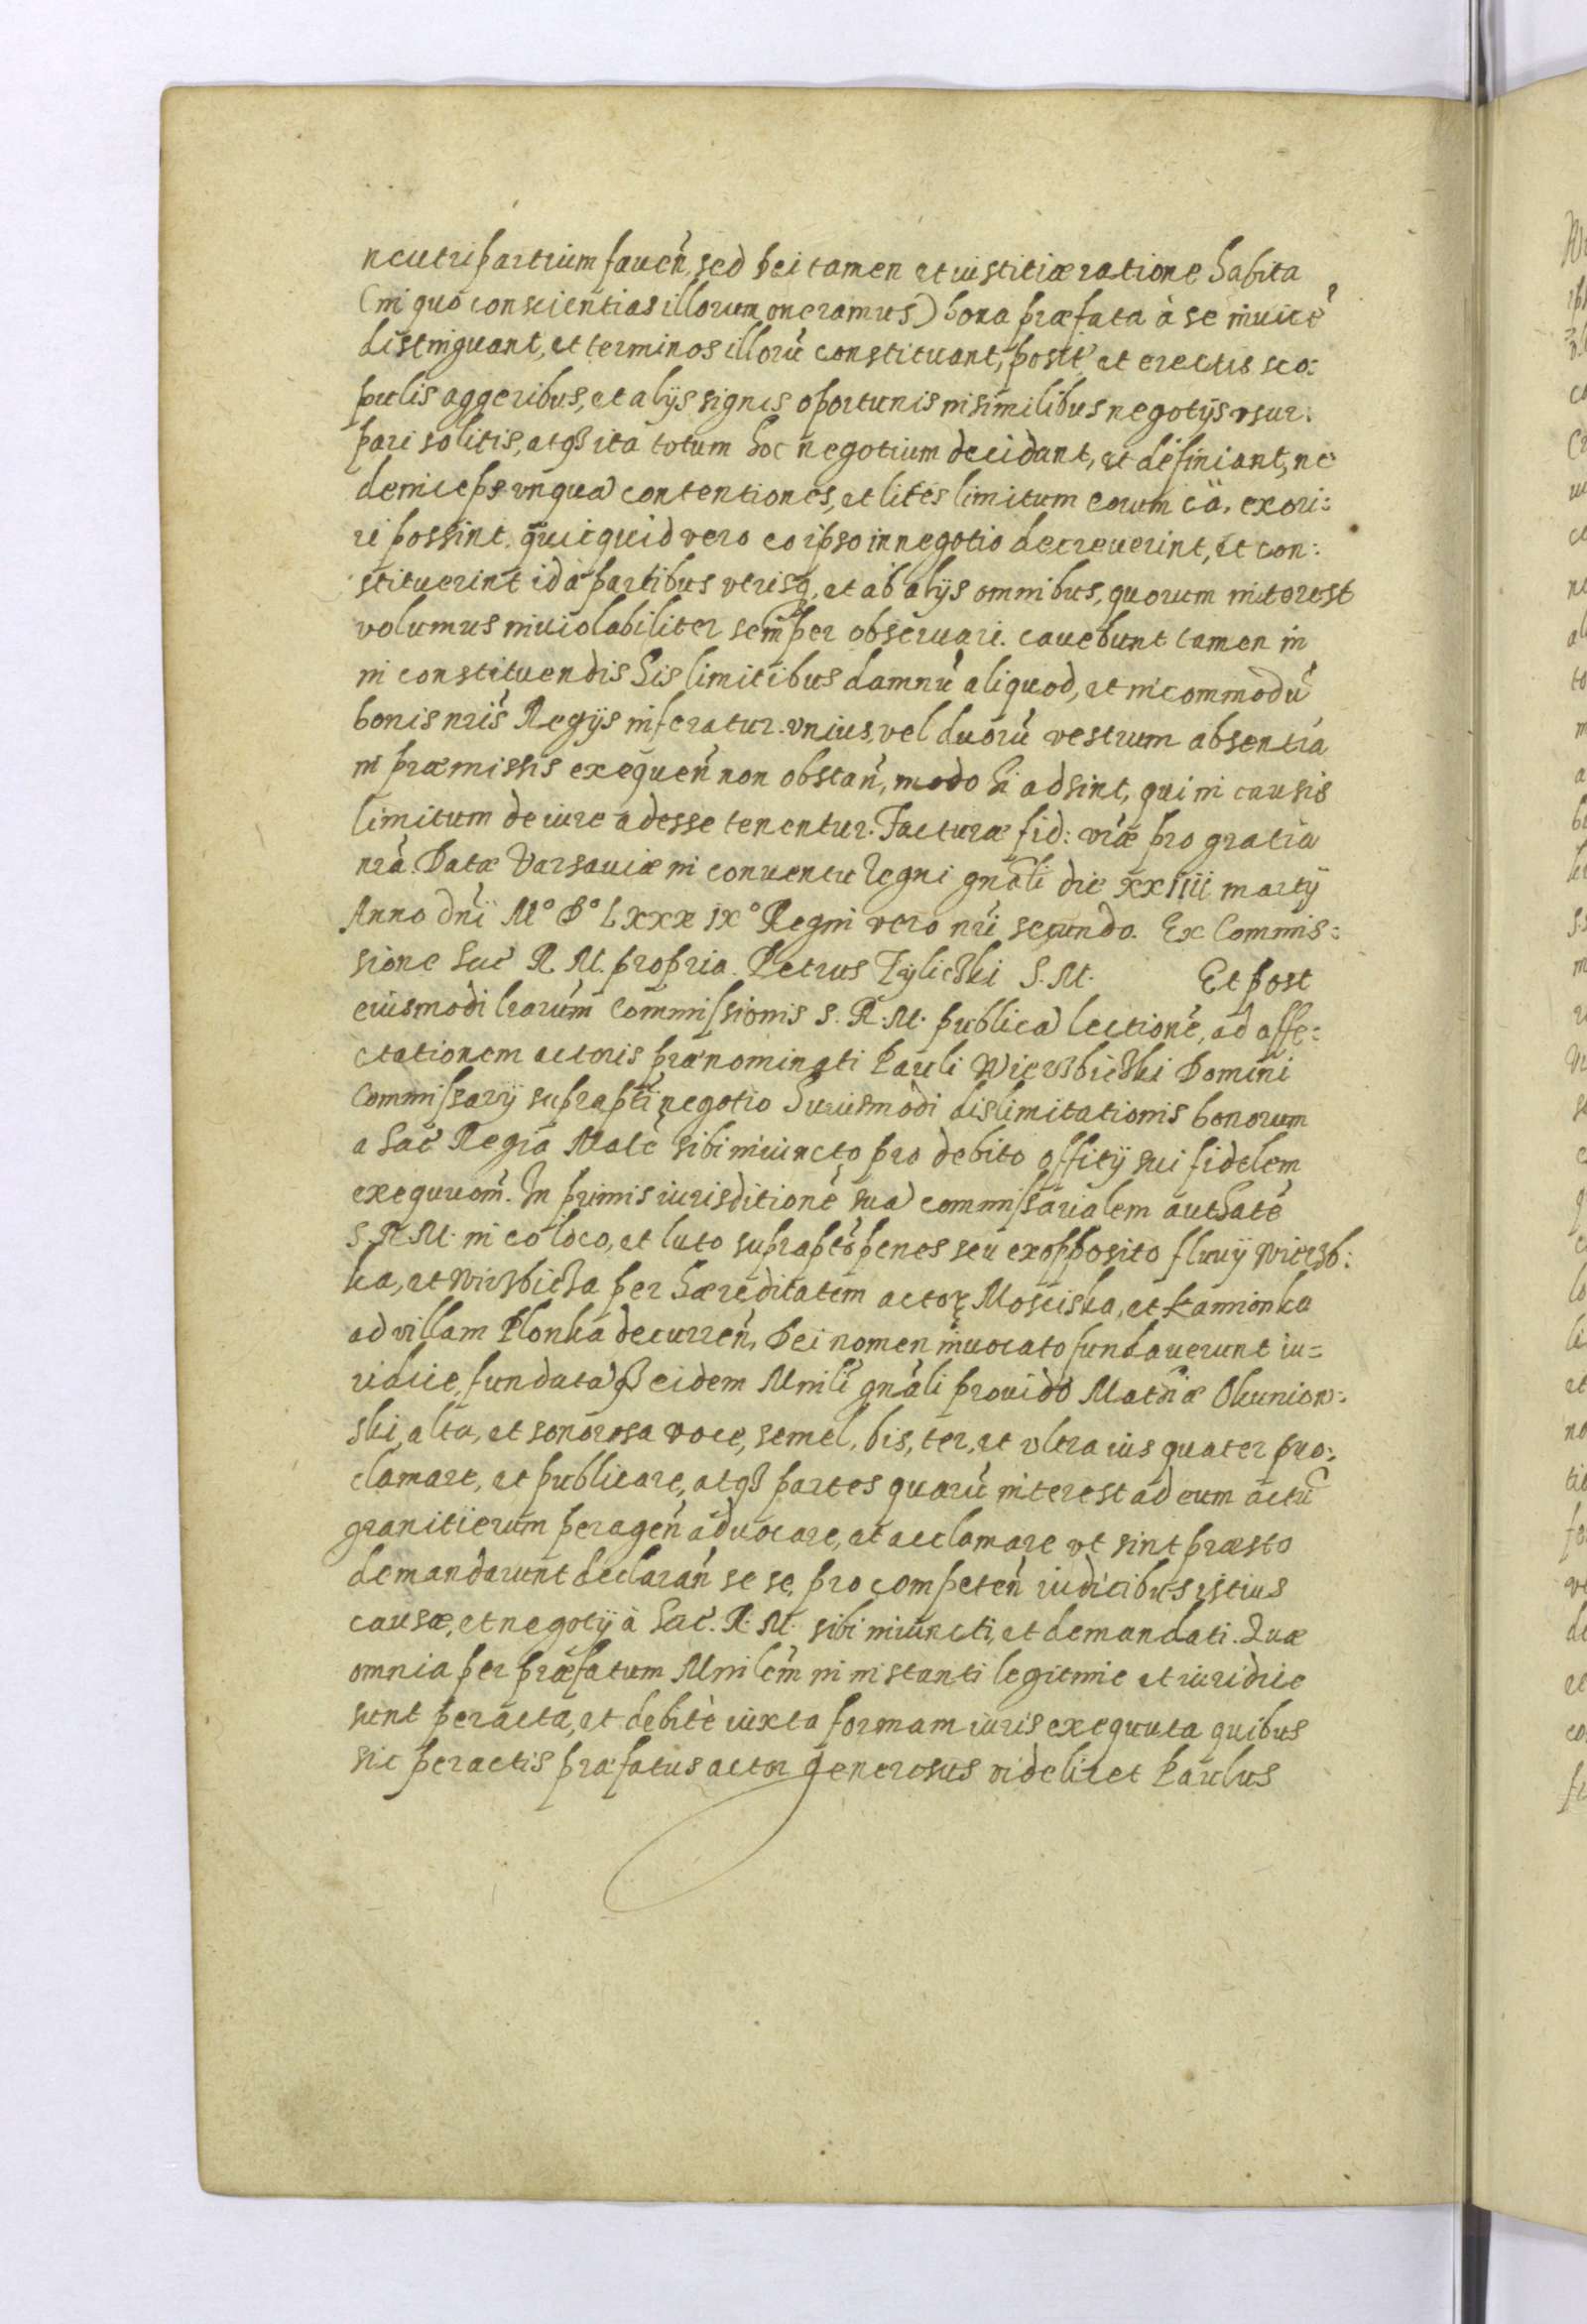 neutri partium faueñ, sed Dei tamen et iustitiæ ratione habita
(in quo conscientias illorum oneramus) bona præfata à se inuicē
distinguant, et terminos illorū constituant, positis et erectis sco:
pulis aggeribus, et alijs signis oportunis in similibus negotijs vsur:
pari solitis, atq₃ ita totum hoc negotium decidant, et definiant, ne
deinceps vnquā contentiones, et lites limitum eorum cā. exori:
ri possint. quicquid vero eo ipso in negotio decreuerint, et con:
stituerint id à partibus vtrisq₃, et ab alijs omnibus, quorum interest
volumus inuiolabiliter semper obseruari. cauebunt tamen in
in constituendis his limitibus damnū aliquod, et incommodū
bonis nrīs Regijs inferatur. vnius, vel duorū vestrum absentia
in præmissis exequeñ non obstañ, modo hi adsint, qui in causis
limitum de iure adesse tenentur. Facturæ fid: vrāe pro gratia
nrā. Datæ Varsauiæ in conuentu regni gnāli die xxiiii martij
Anno dnī Mº Dº Lxxx ixº Regni vero nrī secundo. Ex Commis:
sione Sac̄ R. M. propria. Petrus Tylicżki S. M. Et post
eiusmodi lrārum Commissionis S. R. M. publicā lectionē, ad affe:
ctationem actoris prænominati Pauli Wierzbiczki Domini
Commissarij supraptī negotio huiusmodi dislimitationis bonorum
a Sac̄ Regia Matē sibi iniuncto pro debito offitij sui fidelem
exequuom̄. In primis iurisditionē suā commissarialem authatē
S. R. M. in eo loco, et luto supraptō penes seu ex opposito fluuij Wierzb:
ka, et Wirzbicża per hæreditatem actor₂ Mosciska, et Kamionka
ad villam Plonka decurreñ, Dei nomen inuocato fundauerunt iu=
ridice, fundataq₃ eidem Mnilī gnāli prouido Mathiæ Okuniow:
ski alta, et sonorosa voce, semel, bis, ter, et vlterius quater pro:
clamare, et publicare, atq₃ partes quarū interest ad eum actū
granicierum perageñ aduocare, et acclamare vt sint præsto
demandarunt declarañ se se, pro competeñ iudicibus istius
causæ, et negotij à Sac̄. R. M. sibi iniuncti, et demandati. Quæ
omnia per præfatum Mnilēm in instanti legitime et iuridice
sunt peracta, et debitè iuxta formam iuris exequuta quibus
sic peractis præfatus actor generosus videlicet Paulus